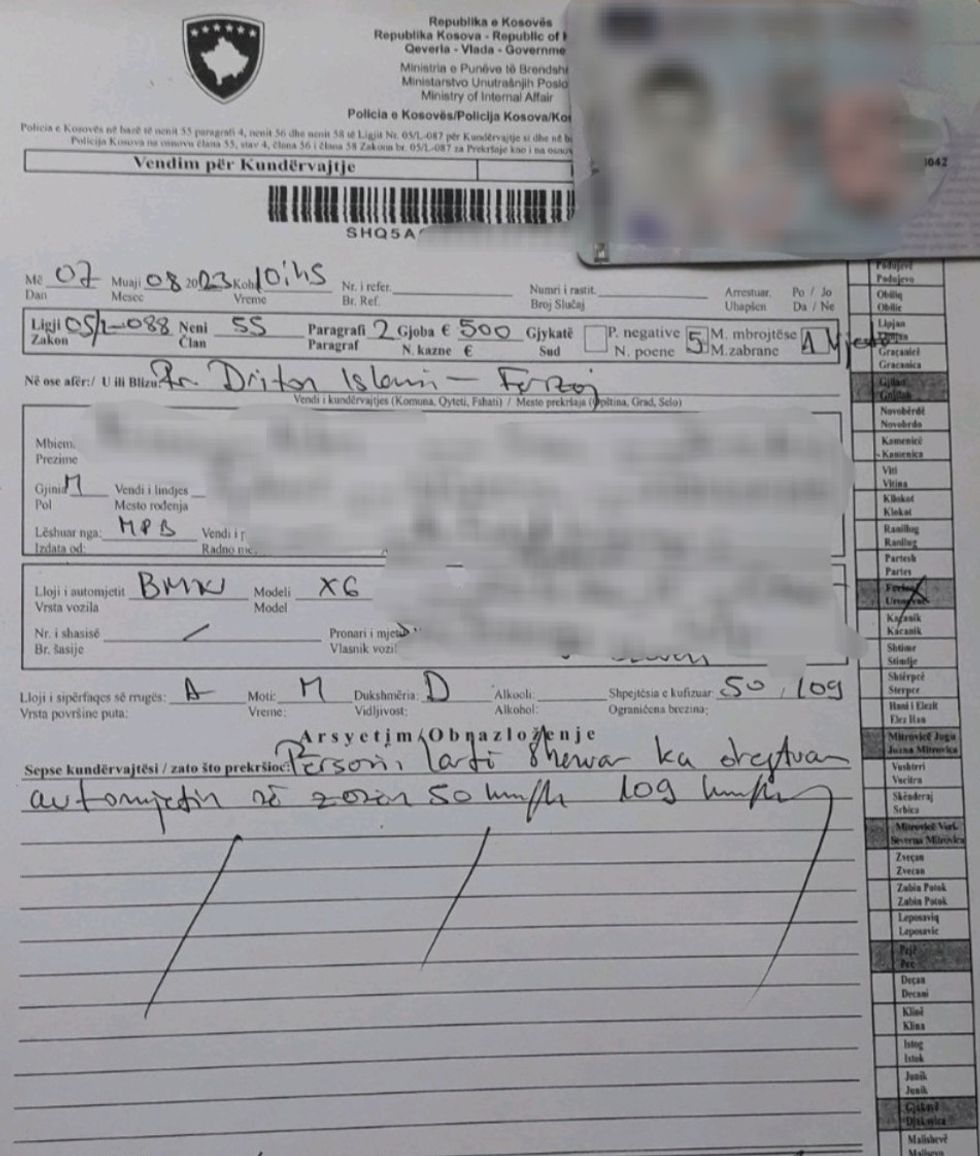 Republika e Kosovës
Republika Kosova - Republic of
Qeveria - Vlada - Governme
Ministria e Punëve të Brendshr
Ministarstvo Unutrašnjih Poslo
Ministry of Internal Affair
Policia e Kosovës/Policija Kosova/Kos
Policia e Kosovës në bazë të nenit 55 paragrafi 4, nenit 56 dhe nenit 58 të Ligjit Nr. 05/L-087 për Kundërvajtje si dhe në b
Policija Kosova na osnovu člana 55, stav 4, člana 56 i člana 58 Zakona br. 05/L-087 za Prekršaje kao i na osnov
Vendim për Kundërvajtje
042
SHQ5A
Më 07 Muaji 08 2023 Koha 10:45 Nr. i refer. Numri i rastit. Arrestuar. Po / Jo
Dan Mesec Vreme Br. Ref. Broj Slučaj Uhapšen Da / Ne
Ligji 05/L-088 Neni 55 Paragrafi 2 Gjoba € 500 Gjykatë P. negative 5 M. mbrojtëse 1 Mjesto
Zakon Član Paragraf N. kazne € Sud N. poene M.zabrane
Në ose afër:/ U ili Blizu: Rr. Driton Islami - Ferizaj
Vendi i kundërvajtjes (Komuna, Qyteti, Fshati) / Mesto prekršaja (Opština, Grad, Selo)
Mbiem.
Prezime
Gjinia M Vendi i lindjes
Pol Mesto rođenja
Lëshuar nga: MPB Vendi i p
Izdata od: Radno me
Lloji i automjetit BMW Modeli X6
Vrsta vozila Model
Nr. i shasisë / Pronari i mjetit
Br. šasije Vlasnik vozil
Lloji i sipërfaqes së rrugës: A Moti: M Dukshmëria: D Alkooli: Shpejtësia e kufizuar: 50, 109
Vrsta površine puta: Vreme: Vidljivost: Alkohol: Ograničena brezina:
Arsyetim/Obnazloženje
Sepse kundërvajtësi / zato što prekršioc: Personi lartë shenuar ka drejtuar
automjetin në zonën 50 km/h 109 km/h
Podujevë
Podujevo
Obiliq
Obilic
Lipjan
Lipljan
Graçanicë
Gracanica
Gjilan
Gnjilan
Novobërdë
Novobrdo
Kamenicë
Kamenica
Viti
Vitina
Kllokot
Klokot
Ranillug
Ranilug
Partesh
Partes
Ferizaj
Urosevac
Kaçanik
Kacanik
Shtime
Stimlje
Shtërpcë
Sterpce
Hani i Elezit
Elez Han
Mitrovicë Jugu
Juzna Mitrovica
Vushtrri
Vucitrn
Skënderaj
Srbica
Mitrovicë Veri.
Severna Mitrovica
Zveçan
Zvecan
Zubin Potok
Zubin Potok
Leposaviq
Leposavic
Pejë
Pec
Deçan
Decani
Klinë
Klina
Istog
Istok
Junik
Junik
Gjakovë
Djakovica
Malishevë
Malisevo